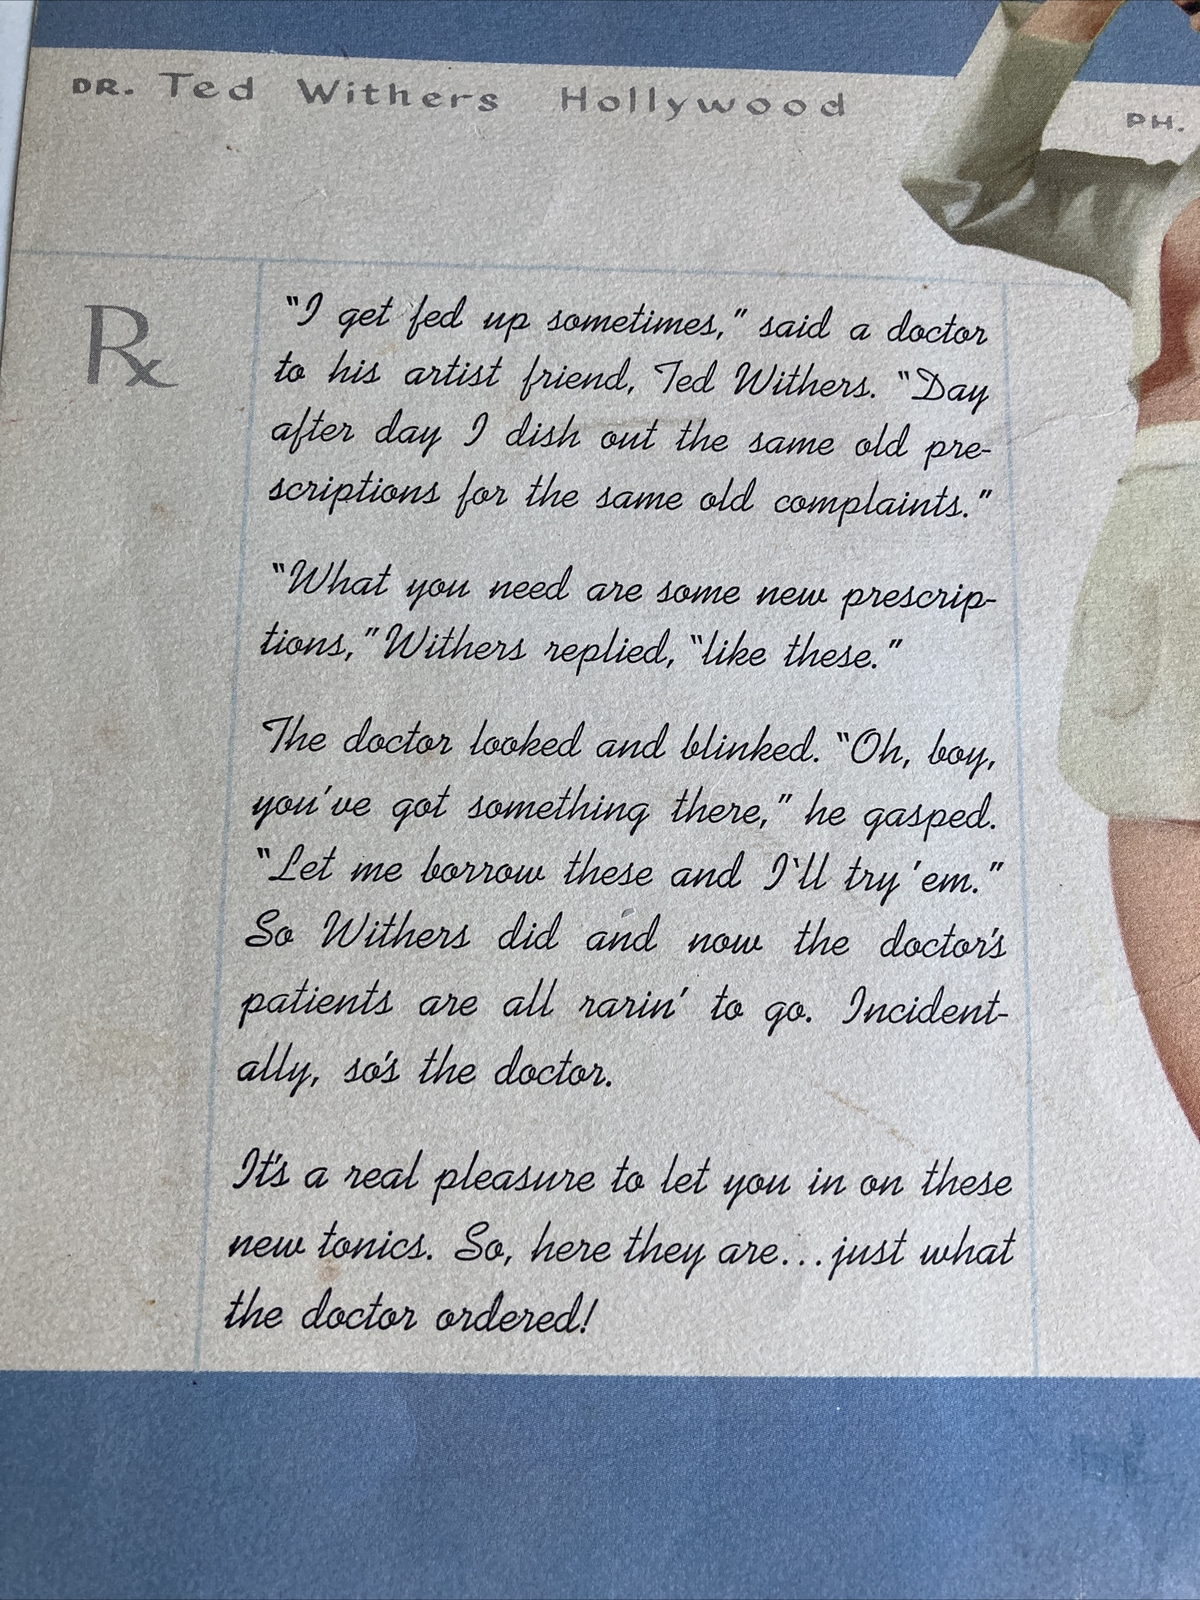 DR. Ted Withers Hollywood
PH.
Rx
"I get fed up sometimes," said a doctor
to his artist friend, Ted Withers. "Day
after day I dish out the same old pre-
scriptions for the same old complaints."
"What you need are some new prescrip-
tions," Withers replied, "like these."
The doctor looked and blinked. "Oh, boy,
you've got something there," he gasped.
"Let me borrow these and I'll try 'em."
So Withers did and now the doctor's
patients are all rarin' to go. Incident-
ally, so's the doctor.
It's a real pleasure to let you in on these
new tonics. So, here they are...just what
the doctor ordered!